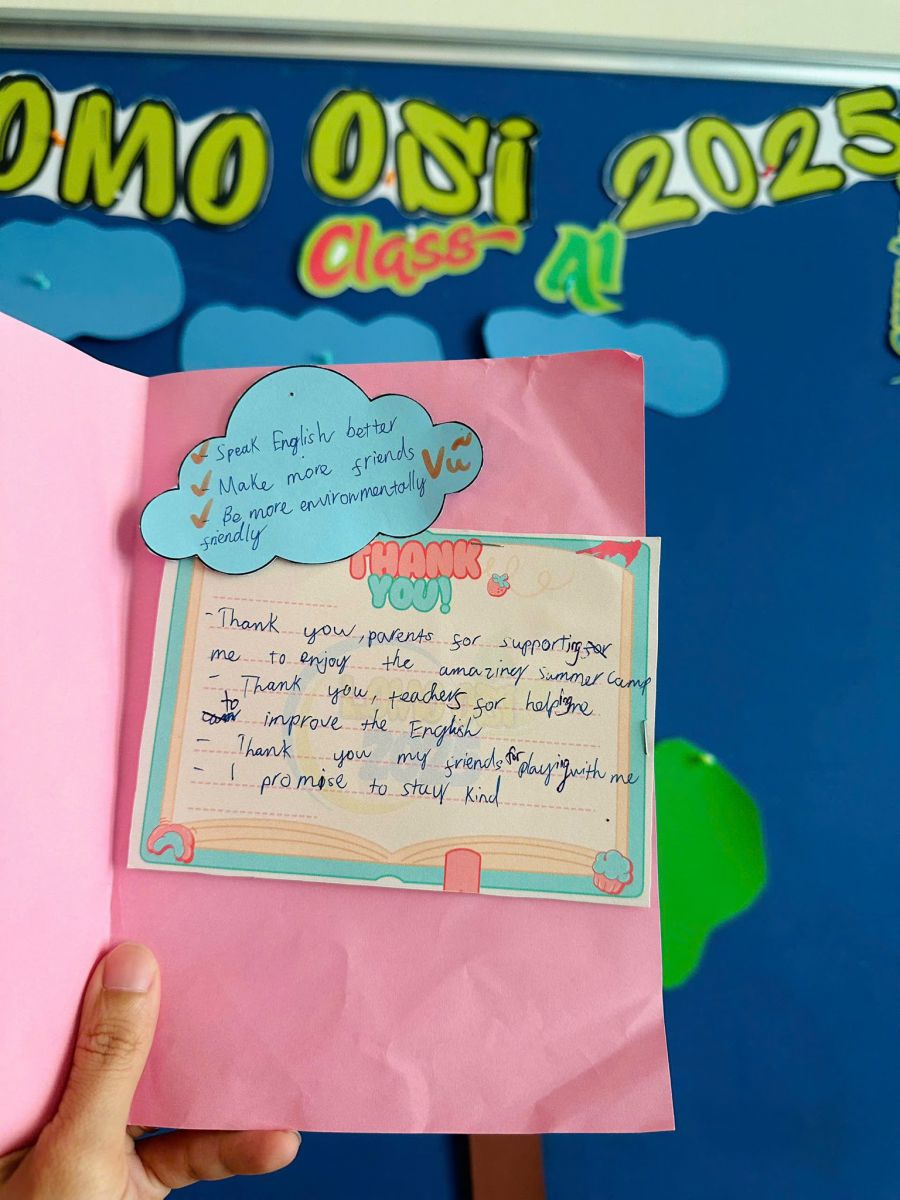 OMO OSi 2025
Class A1
- Speak English better
- Make more friends
- Be more environmentally
friendly
Vũ
THANK
YOU!
- Thank you, parents for supporting for
me to enjoy the amazing summer camp
- Thank you, teachers for helping me
to improve the English
- Thank you my friends for playing with me
- I promise to stay kind